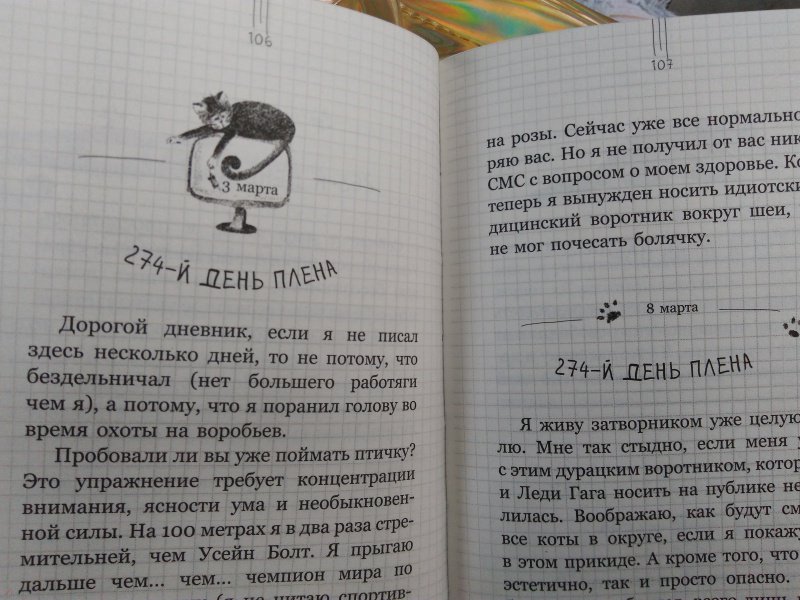 106
3 марта
274-Й ДЕНЬ ПЛЕНА
Дорогой дневник, если я не писал
здесь несколько дней, то не потому, что
бездельничал (нет большего работяги
чем я), а потому, что я поранил голову во
время охоты на воробьев.
Пробовали ли вы уже поймать птичку?
Это упражнение требует концентрации
внимания, ясности ума и необыкновен-
ной силы. На 100 метрах я в два раза стре-
мительней, чем Усейн Болт. Я прыгаю
дальше чем... чем... чемпион мира по
(я не читаю спортив-
107
на розы. Сейчас уже все нормально
ряю вас. Но я не получил от вас ник
СМС с вопросом о моем здоровье. Ко
теперь я вынужден носить идиотски
дицинский воротник вокруг шеи,
не мог почесать болячку.
8 марта
274-Й ДЕНЬ ПЛЕНА
Я живу затворником уже целую
лю. Мне так стыдно, если меня у
с этим дурацким воротником, котор
и Леди Гага носить на публике не
лилась. Воображаю, как будут см
все коты в округе, если я покажу
в этом прикиде. А кроме того, что
эстетично, так и просто опасно.